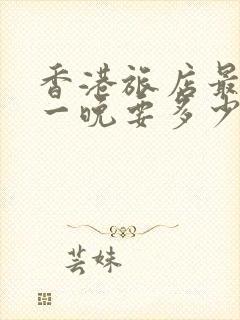 香港旅店最
一晚要多少
芸妹